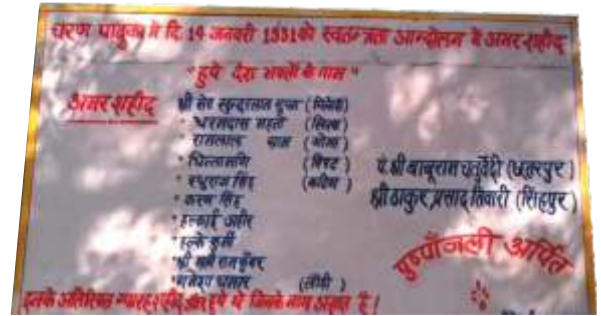 चरण पादुका मे दि. 14 जनवरी 1931 को स्वतन्त्रता आन्दोलन मे अमर शहीद
"हुये देश भक्तों के नाम"
अमर शहीद
श्री सेठ सुन्दरलाल गुप्ता (गिलोंहा)
" धरमदास महतो (खिरवा)
" रामलाल (गोमा)
" चिन्तामणि (पिपट)
" रघुराज सिंह (कटिया)
" करण सिंह
" हल्काई अहीर
" हल्के कुर्मी
" श्री मती रामकुँवर
" गनेश चमार (लौंडी)
पं. श्री बाबूराम चतुर्वेदी (छतरपुर)
श्री ठाकुर प्रसाद तिवारी (सिंहपुर)
पुष्पाँजली अर्पित
इनके अतिरिक्त ग्यारह शहीद और हुये थे जिनके नाम अज्ञात है।